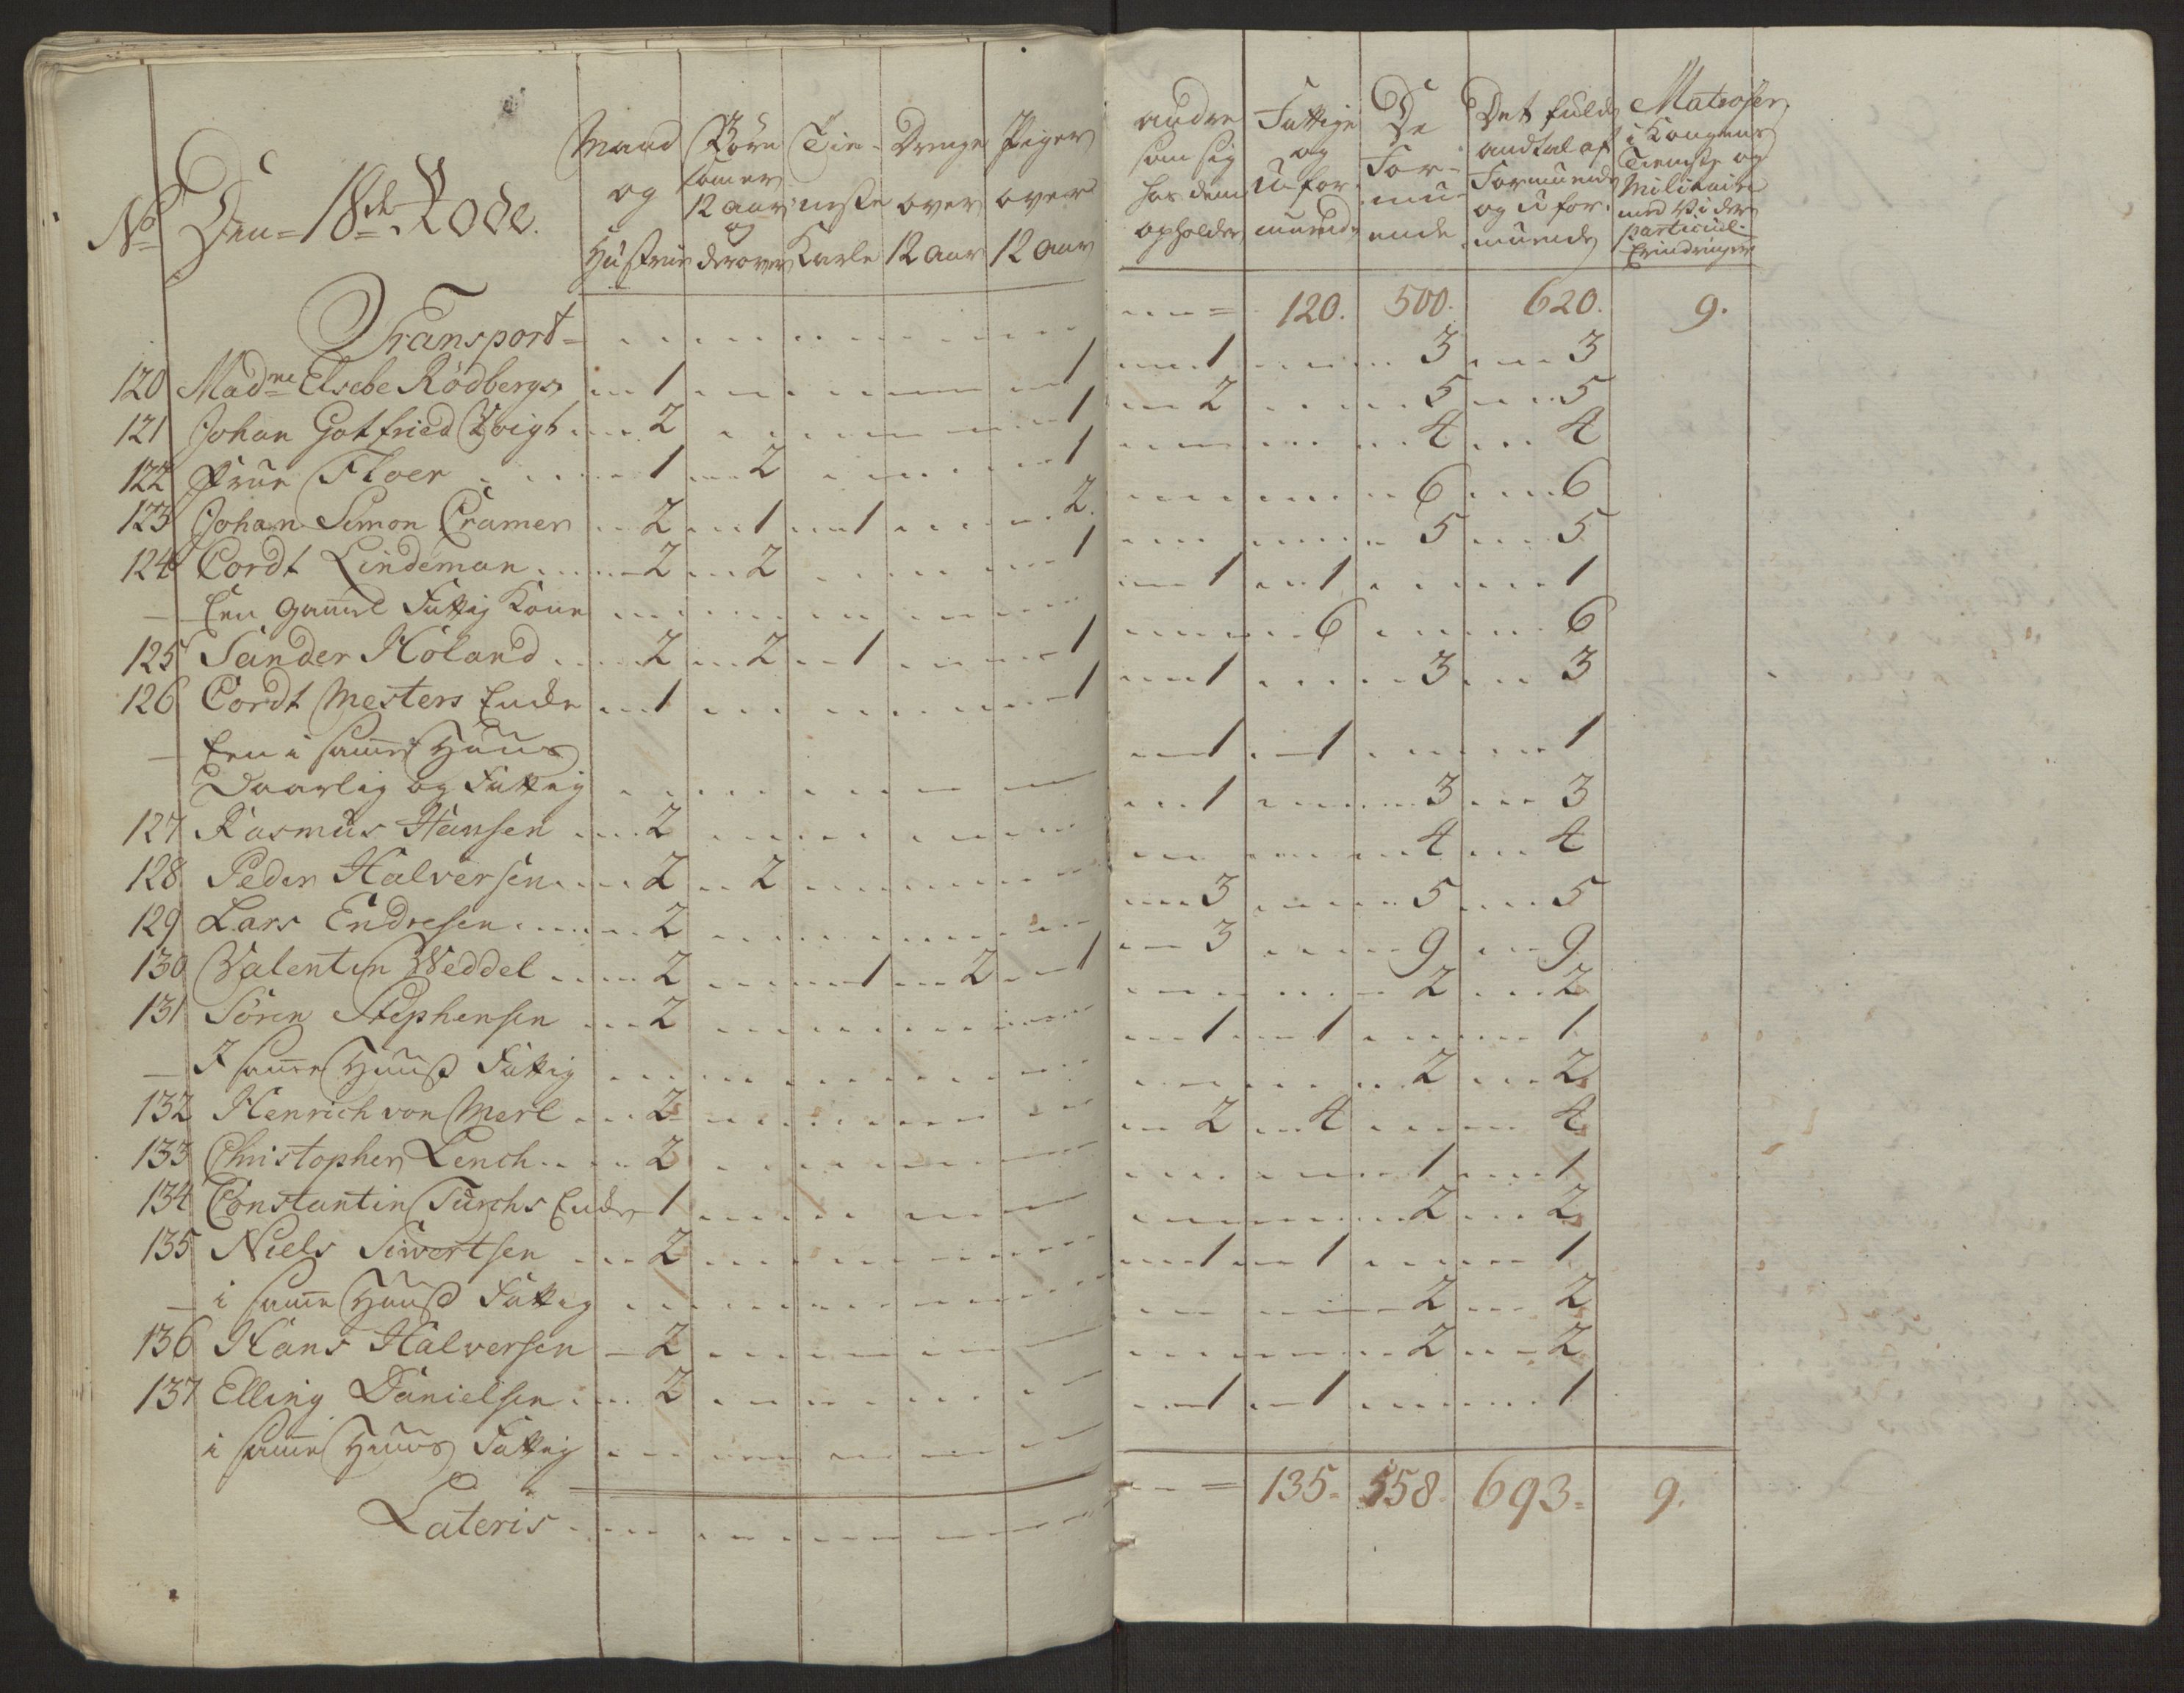 No Den 18de Rode.
Mand og Hustrue
Börn som er 12 aar og derover
Tieneste Karle
Drenge over 12 Aar
Piger over 12 Aar
andre som sig hos dem opholder
Fattige og uformuende
De Formuende
Det fulde andtal af Formuende og uformuende
Matroser i Kongens Tieneste og Militaire med Vider particul. Erindringer
Transport = 120. 500. 620. 9.
120 Madme Elsebe Rödbergs 1 1 1 3 3
121 Johan Gotfried Voigt 2 1 2 5 5
122 Frue Floer 1 2 1 4 4
123 Johan Simon Cramer 2 1 1 2. 6 6
124 Cordt Lindeman 2 2 1 5 5
— Een gamel Fattig Kone 1 1 1
125 Sander Höland 2 2 1 1 6 6
126 Cordt Mesters Enke 1 1 1 3 3
— Een i samme Huus
Daarlig og Fattig 1 1 1
127 Rasmus Hansen 2 1 3 3
128 Peder Halversen 2 2 4 4
129 Lars Endresen 2 3 5 5
130 Valentin Weddel 2 1 2 1 3 9 9
131 Sören Stephensen 2 2 2
— I samme Huuss Fattig 1 1 1
132 Henrich von Merl 2 2 2
133 Christopher Lench 2 2 4 4
134 Constantin Türchs Enke 1 1 1
135 Niels Siwertsen 2 2 2
— i samme Huuss Fattig 1 1 1
136 Hans Halversen 2 2 2
137 Elling Danielsen 2 2 2
i samme Huus Fattig 1 1 1
Lateris = 135. 558. 693. 9.